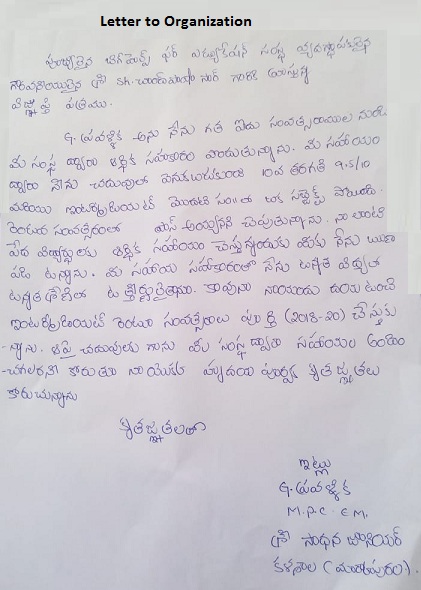 Letter to Organization
పూజ్యులైన బిగ్ హెల్ప్ ఫర్ ఎడ్యుకేషన్ సంస్థ వ్యవస్థాపకులైన
గౌరవనీయులైన శ్రీ Sk. చాంద్ పాషా సార్ గారికి వ్రాస్తున్న
విజ్ఞప్తి పత్రము.
G. ప్రవళ్ళిక అను నేను గత ఐదు సంవత్సరాయిల నుండి
మీ సంస్థ ద్వారా ఆర్థిక సహకారం పొందుతున్నాను. మీ సహాయం
ద్వారా నేను చదువులో వెనకబడకుండా 10వ తరగతి 9.5/10
మరియు ఇంటర్మీడియట్ మొదటి సం॥లో
రెండవ సంవత్సరంలో పాస్ అయ్యానని చెపుతున్నాను. నా లాంటి
పేద విద్యార్థులకు ఆర్థిక సహాయం చేస్తున్నందుకు మీకు నేను ఋణ
పడి ఉన్నాను. మీ సహాయ సహకారంతో నేను ఉన్నత విద్యలో
ఉన్నత శ్రేణిలో ఉత్తీర్ణురాలైతాను. కావున నాయందు దయ ఉంచి
ఇంటర్మీడియట్ రెండూ సంవత్సరాలు పూర్తి (2018-20) చేస్తుకు
-న్నాను. పై చదువులకు గాను మీ సంస్థ ద్వారా సహాయం అందిం
-చగలరని కోరుతూ నా యొక్క హృదయ పూర్వక కృతజ్ఞతలు
కోరుచున్నాను
కృతజ్ఞతలతో
ఇట్లు
G. ప్రవళ్ళిక
M.P.C - E.M.
శ్రీ సాధన జూనియర్
కళశాల (మార్కాపురం).